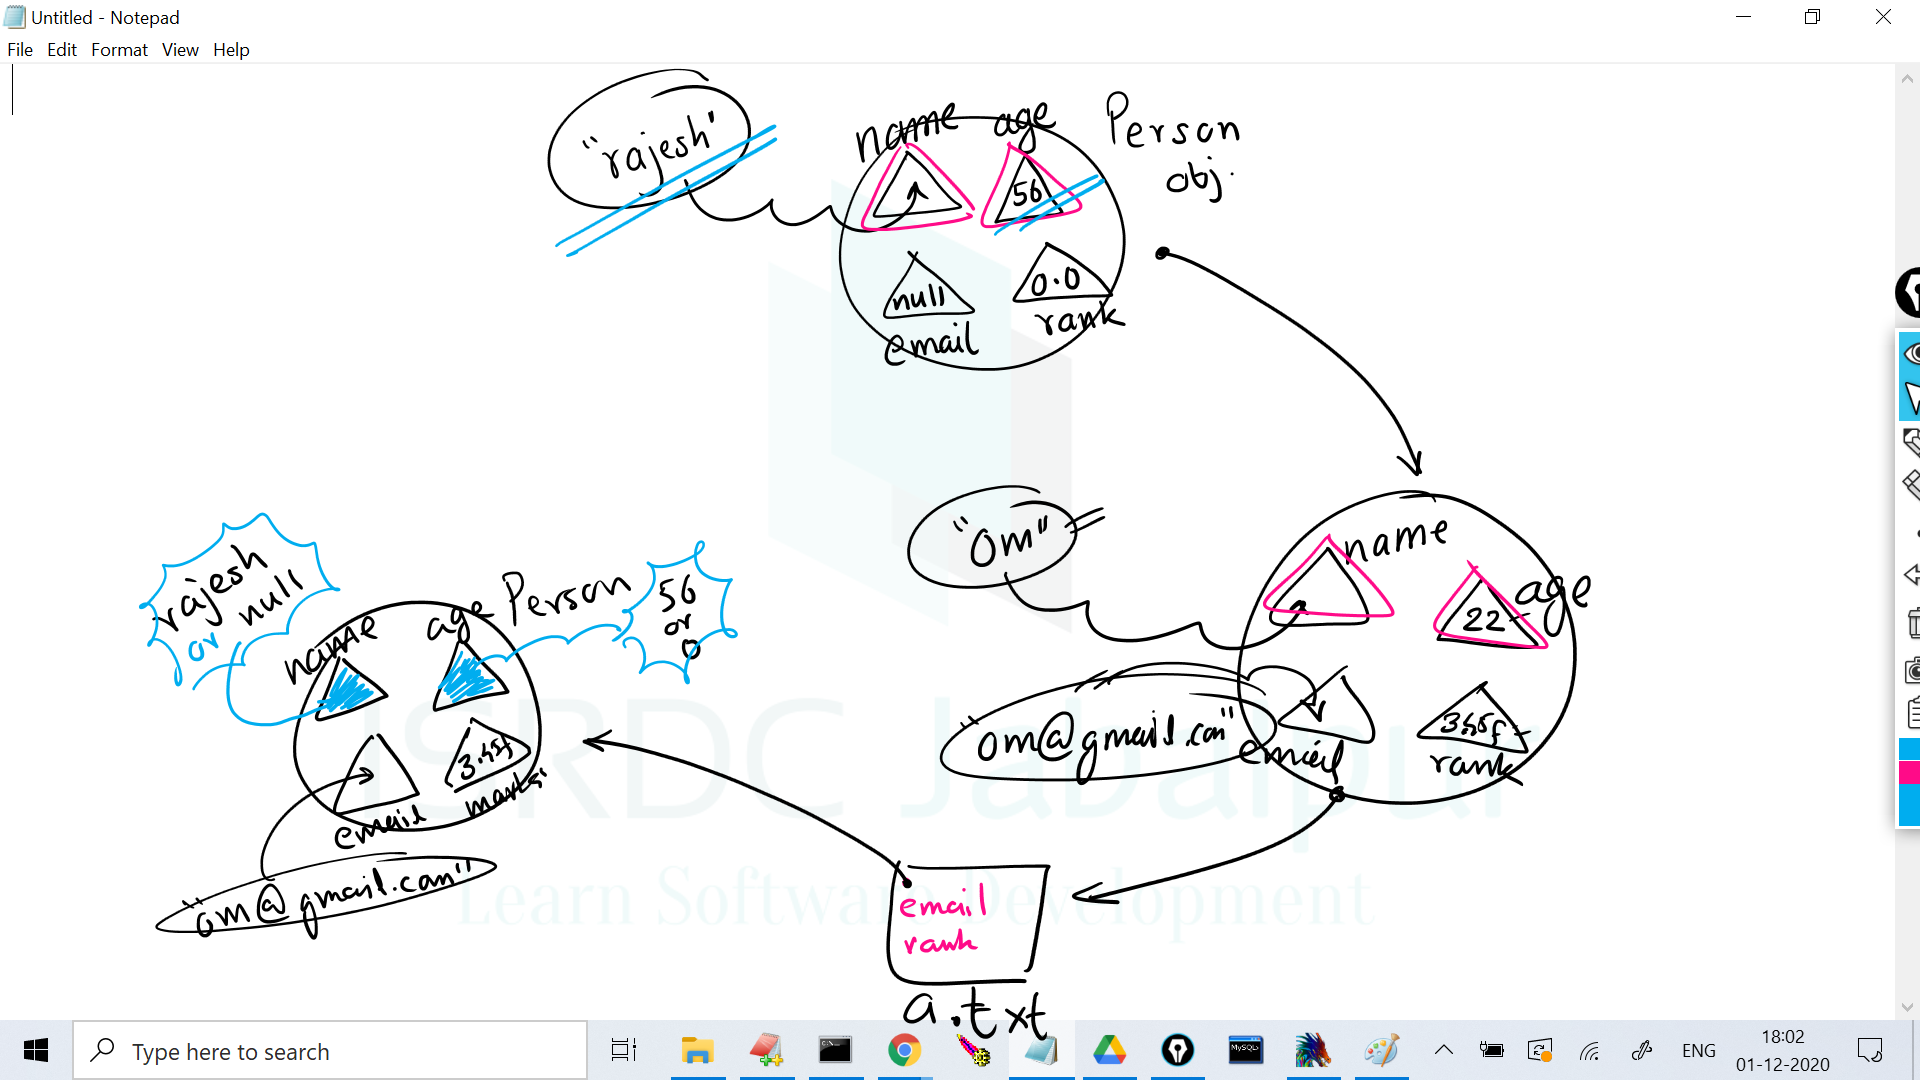 Untitled - Notepad
File Edit Format View Help
"rajesh"
name age Person
obj.
56
null 0.0
email rank
"om"
name
age
22
"om@gmail.com"
email
rank
rajesh
or null
name age Person
56
or
0
3.45f
email marks
"om@gmail.com"
email
rank
a.txt
ISRDC Jabalpur
Learn Software Development
Type here to search
MySQL
ENG
18:02
01-12-2020